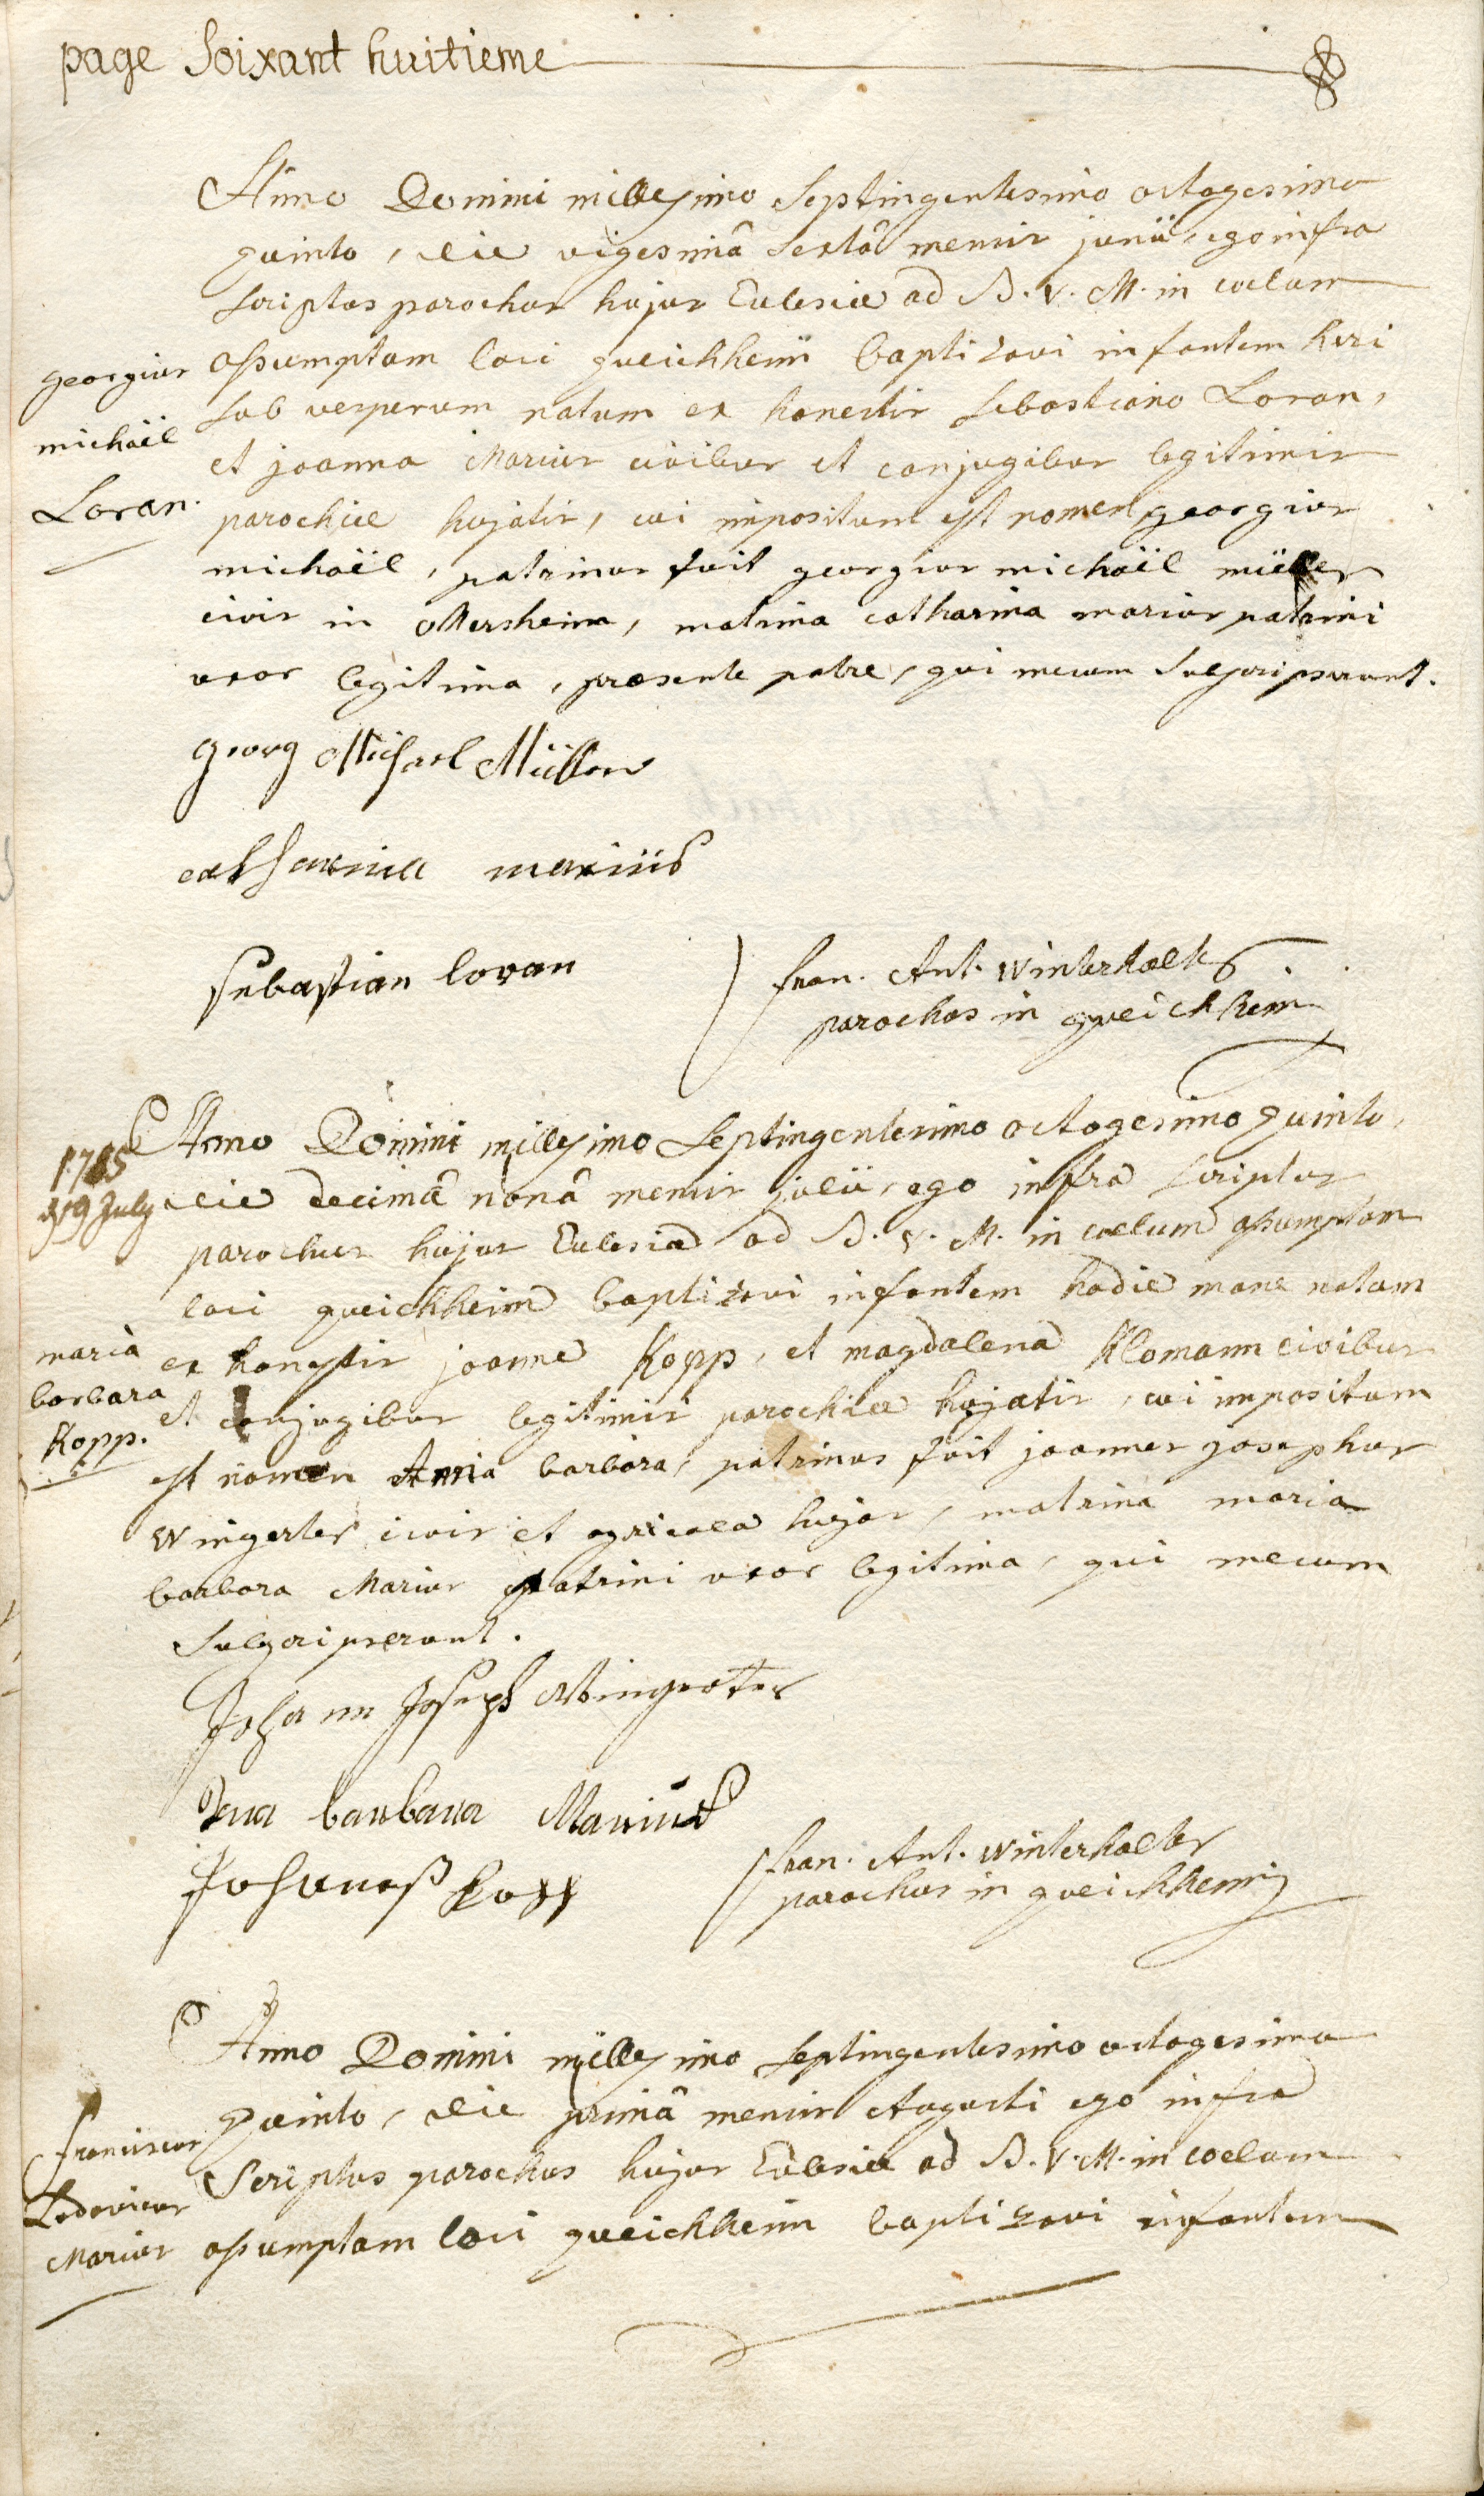 page Soixant huitieme
Anno Domini millesimo Septingentesimo octogesimo
quinto, die vigesimâ Sextâ mensis junii, ego infra
scriptus parochus hujus Eclesiae ad B. V. M. in coelum
assumptam loci queichheim baptizavi infantem heri
georgius
michaël
Loran.
sub vesperum natum ex honestis sebastiano Loran,
et joanna Marius civibus et conjugibus legitimis
parochiae hujatis, cui impositum est nomen georgius
michaël, patrinus fuit georgius michaël müller
civis in Mersheim, matrina catharina marius patrini
uxor legitima, praesente patre, qui mecum Subscripserunt.
Georg Michael Müller
catharina mariüs
sebastian loran
fran. Ant. Winterhalter
parochus in queichheim
Anno Domini millesimo Septingentesimo octogesimo quinto,
1785
d 19 July
die decimâ nonâ mensis julii, ego infra scriptus
parochus hujus Eclesiae ad B. V. M. in coelum assumptam
loci queichheim baptizavi infantem hodie mane natam
maria
barbara
Kopp.
ex honestis joanne Kopp, et magdalena Klomann civibus
et conjugibus legitimis parochiae hujatis, cui impositum
est nomen Anna barbara, patrinus fuit joannes josephus
Wingerter civis et agricola hujas, matrina maria
barbara Marius patrini uxor legitima, qui mecum
Subscripserunt.
Johann Joseph Wingerter
barbara Mariuß
Johaneß Kopp
fran. Ant. Winterhalter
parochus in queichheim
Anno Domini millesimo Septingentesimo octogesimo
quinto, die primâ mensis Augusti ego infra
franciscus
Lodovicus
Marius
Scriptus parochus hujus Eclesiae ad B. V. M. in coelum
assumptam loci queichheim baptizavi infantem